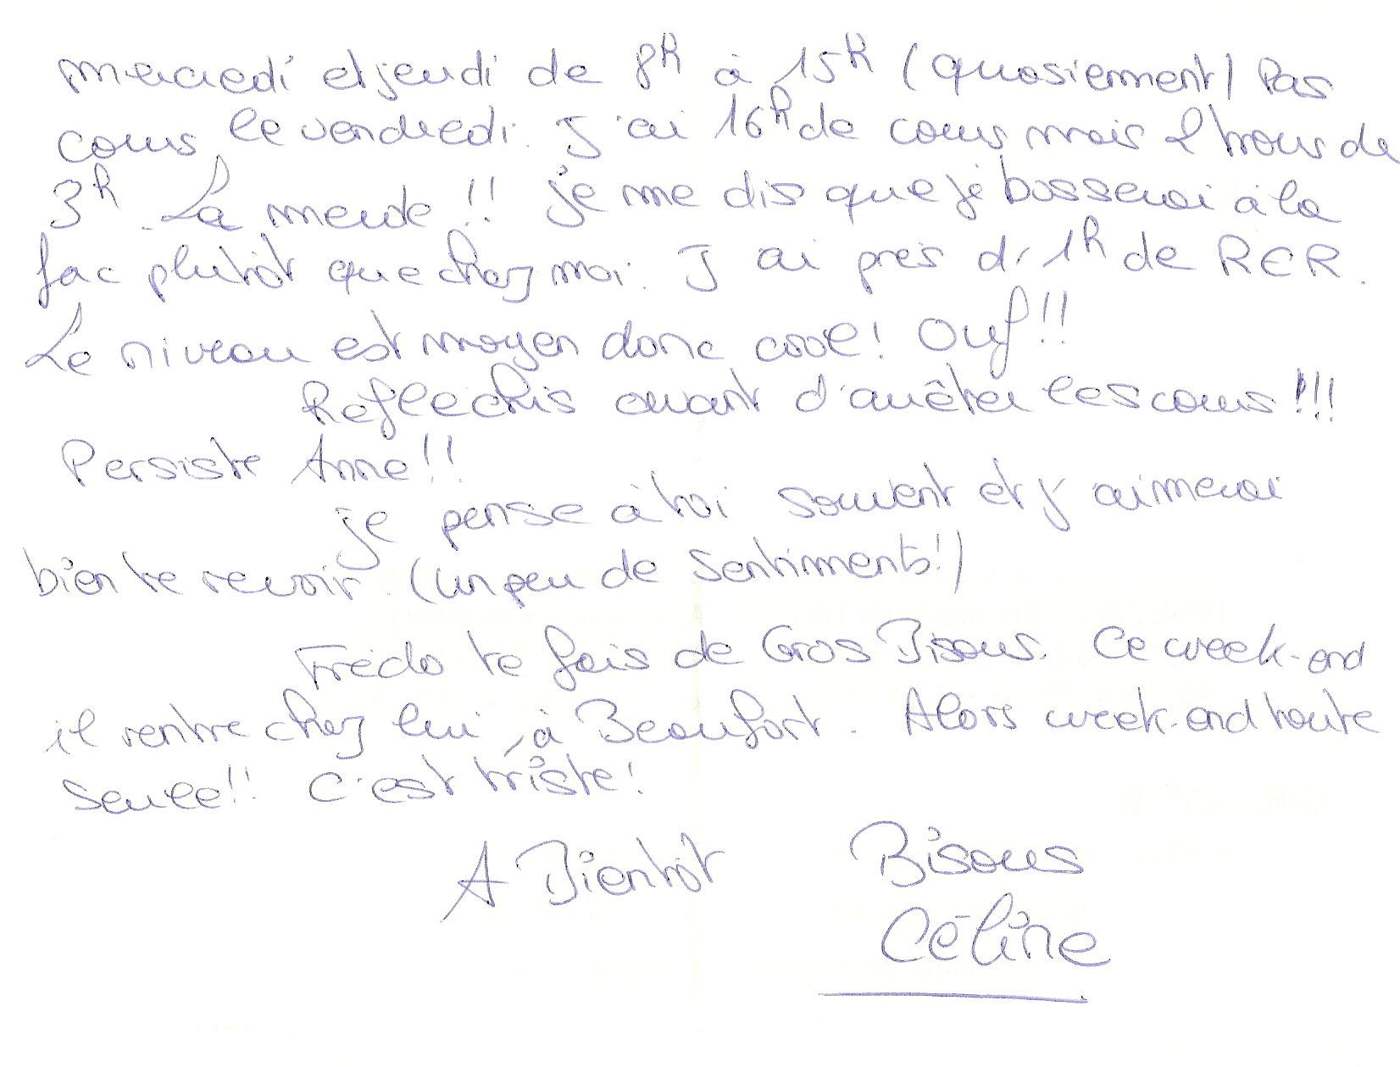 mercredi et jeudi de 8h à 15h (quasiemment) Pas
cours le vendredi. J'ai 16h de cours mais 2 trous de
3h. La merde !! je me dis que je bosserai à la
fac plutôt que chez moi. J'ai près d'1h de RER.
Le niveau est moyen donc cool! Ouf!!
Reflechis avant d'arrêter les cours!!!
Persiste Anne!!
je pense à toi souvent et j'aimerai
bien te revoir. (un peu de Sentiments!)
Frédo te fais de Gros Bisous. Ce week-end
il rentre chez lui, à Beaufort. Alors week-end toute
seule!! C'est triste!
A Bientôt Bisous
Céline